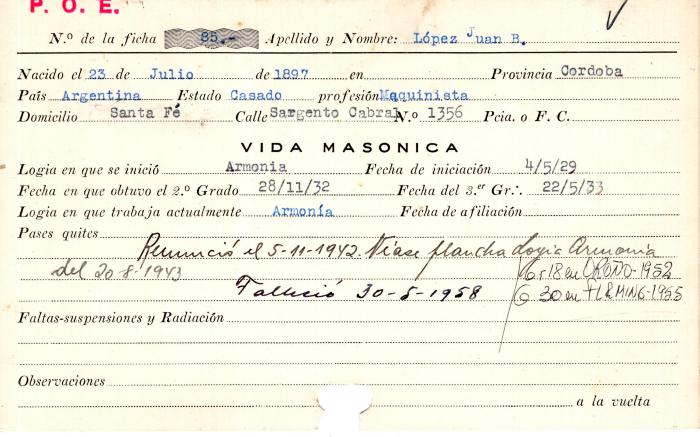 P. O. E.
N.º de la ficha 85.- Apellido y Nombre: López Juan B.
Nacido el 23 de Julio de 1897 en Provincia Cordoba
País Argentina Estado Casado profesión Maquinista
Domicilio Santa Fé Calle Sargento Cabral N.º 1356 Pcia. o F. C.
VIDA MASONICA
Logia en que se inició Armonia Fecha de iniciación 4/5/29
Fecha en que obtuvo el 2.º Grado 28/11/32 Fecha del 3.er Gr∴ 22/5/33
Logia en que trabaja actualmente Armonía Fecha de afiliación
Pases quites
Renunció el 5-11-1942. Véase plancha Logia Armonia
del 20-8-1943 G 18 en OROÑO-1952
Falleció 30-5-1958 G 30 en FLRMING-1955
Faltas-suspensiones y Radiación
Observaciones
a la vuelta